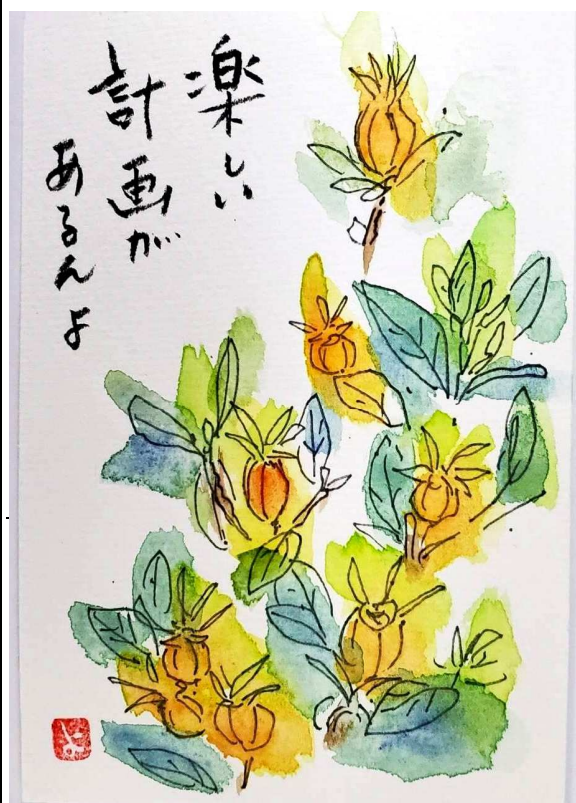 楽しい
計画が
あるんよ